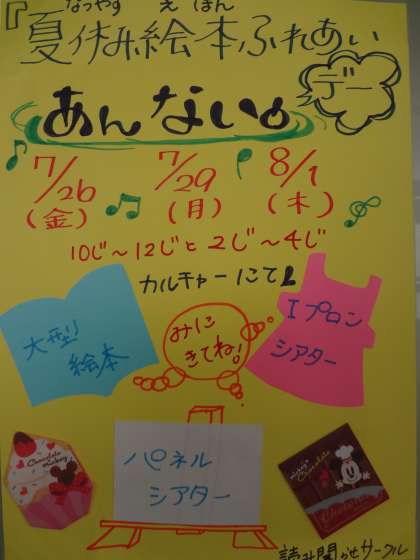 『なつやす えほん
夏休み絵本ふれあい
デー
あんない。
7/26 7/29 8/1
(金) (月) (木)
10じ~12じと2じ~4じ
カルチャーにて
大型
絵本
みに
きてね!
エプロン
シアター
パネル
シアター
Chocolate
Mickey
Chocolate
読み聞かせサークル